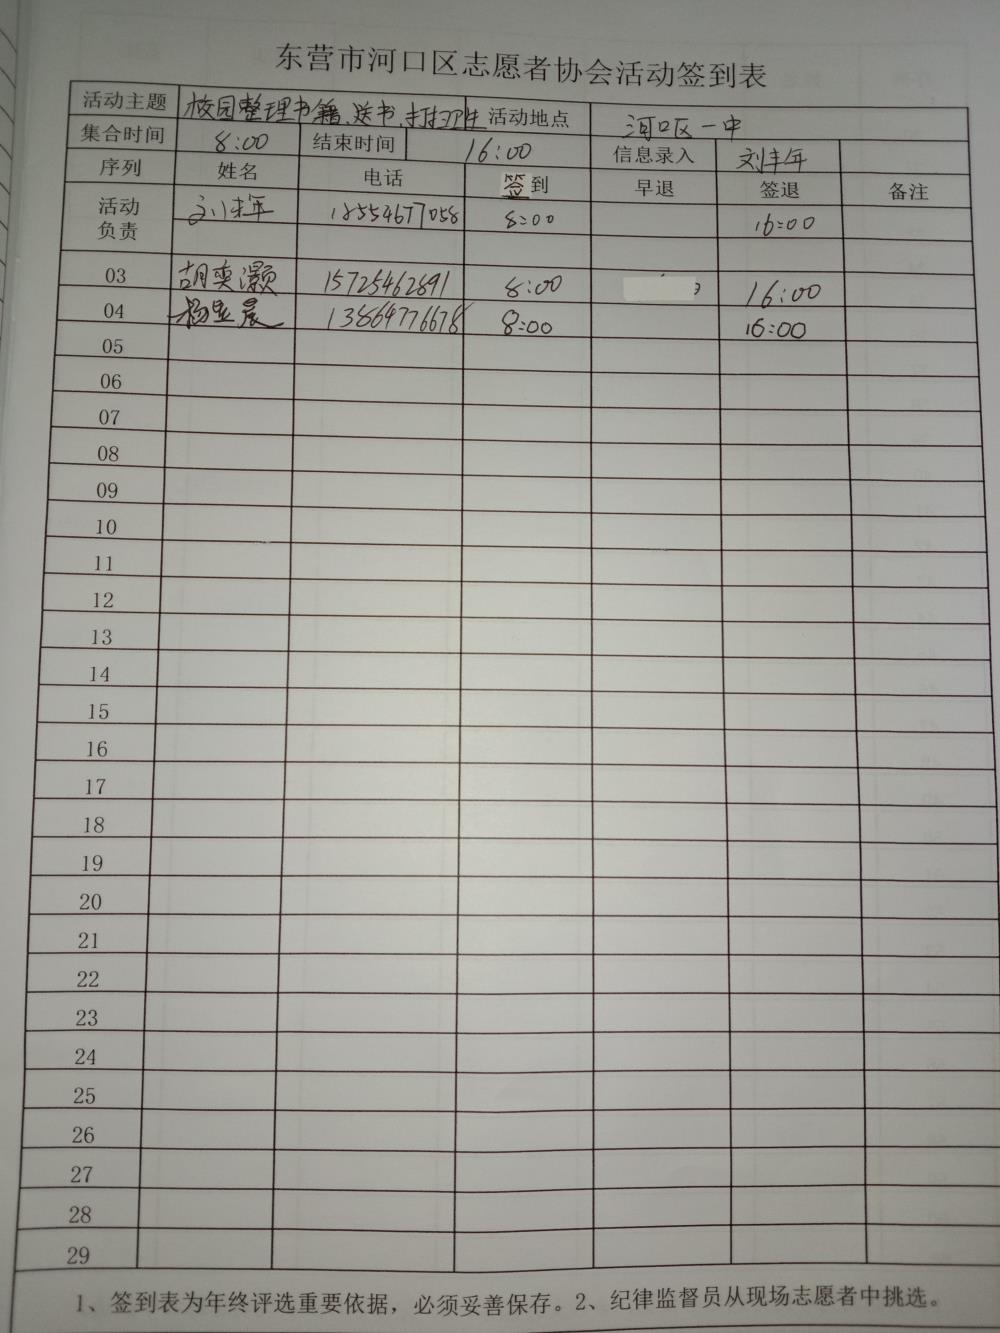 东营市河口区志愿者协会活动签到表
活动主题 校园整理书籍、送书、打扫卫生 活动地点 河口区一中
集合时间 8:00 结束时间 16:00 信息录入 刘丰年
序列 姓名 电话 签到 早退 签退 备注
活动负责 刘丰年 18554677058 8:00 16:00
03 胡奕灏 15725462891 8:00 16:00
04 杨 晨 13864776678 8:00 16:00
05
06
07
08
09
10
11
12
13
14
15
16
17
18
19
20
21
22
23
24
25
26
27
28
29
1、签到表为年终评选重要依据，必须妥善保存。2、纪律监督员从现场志愿者中挑选。